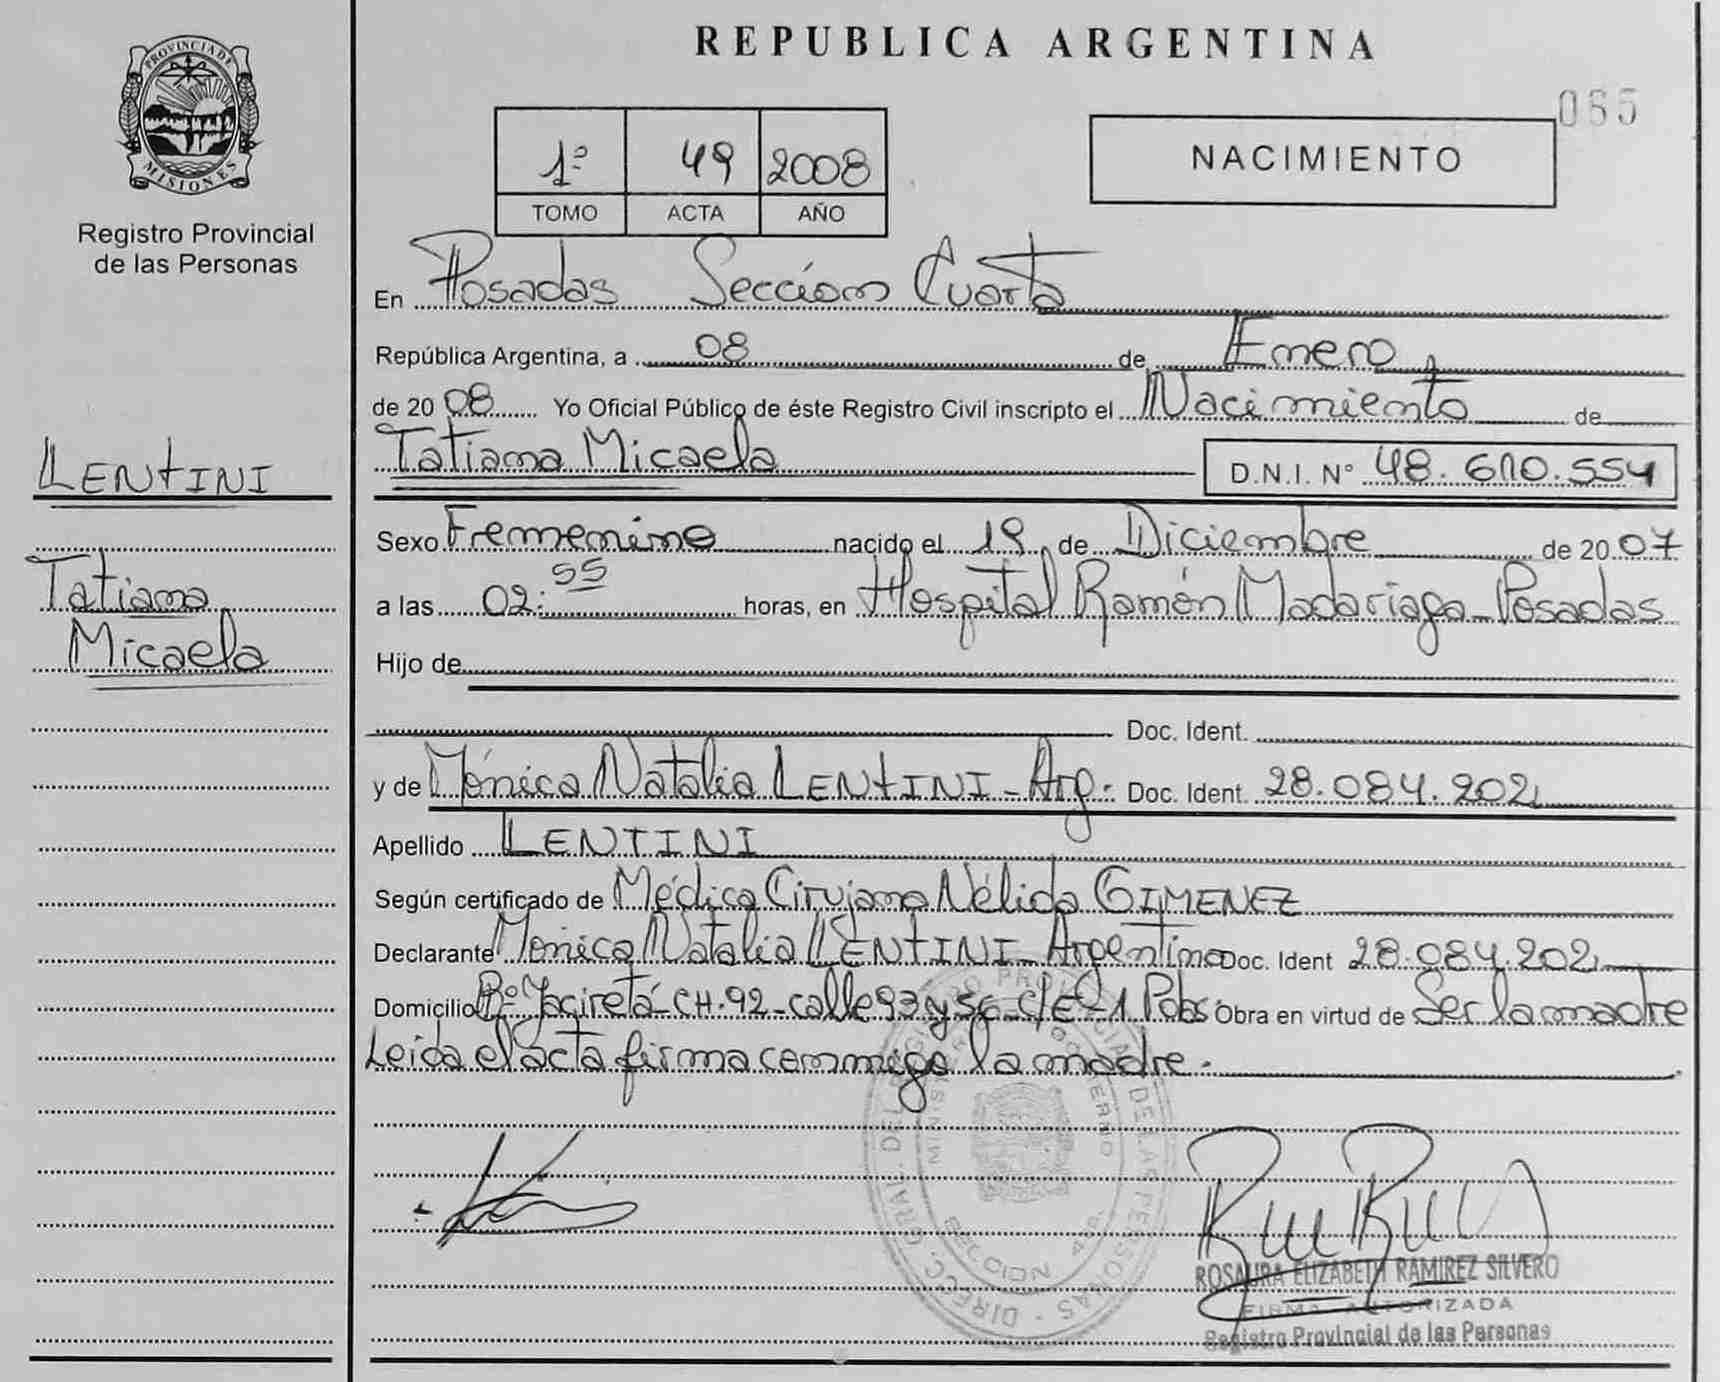 REPUBLICA ARGENTINA
065
PROVINCIA DE
MISIONES
Registro Provincial
de las Personas
1º 49 2008
TOMO ACTA AÑO
NACIMIENTO
En Posadas Sección Cuarta
República Argentina, a 08 de Enero
de 20 08 Yo Oficial Público de éste Registro Civil inscripto el Nacimiento de
Tatiana Micaela D.N.I. Nº 48.610.554
LENTINI
Tatiana
Micaela
Sexo Femenino nacido el 19 de Diciembre de 20 07
a las 02:55 horas, en Hospital Ramón Madariaga - Posadas
Hijo de
Doc. Ident.
y de Mónica Natalia LENTINI - Arg. Doc. Ident. 28.084.202
Apellido LENTINI
Según certificado de Médica Cirujana Nélida GIMENEZ
Declarante Mónica Natalia LENTINI - Argentina Doc. Ident 28.084.202
Domicilio Bº Yaciretá - CH. 92 - calle 93 y 56 - Pdas. Obra en virtud de Ser la madre
Leida el acta firma conmigo la madre.
ROSAURA ELIZABETH RAMIREZ SILVERO
FIRMA AUTORIZADA
Registro Provincial de las Personas